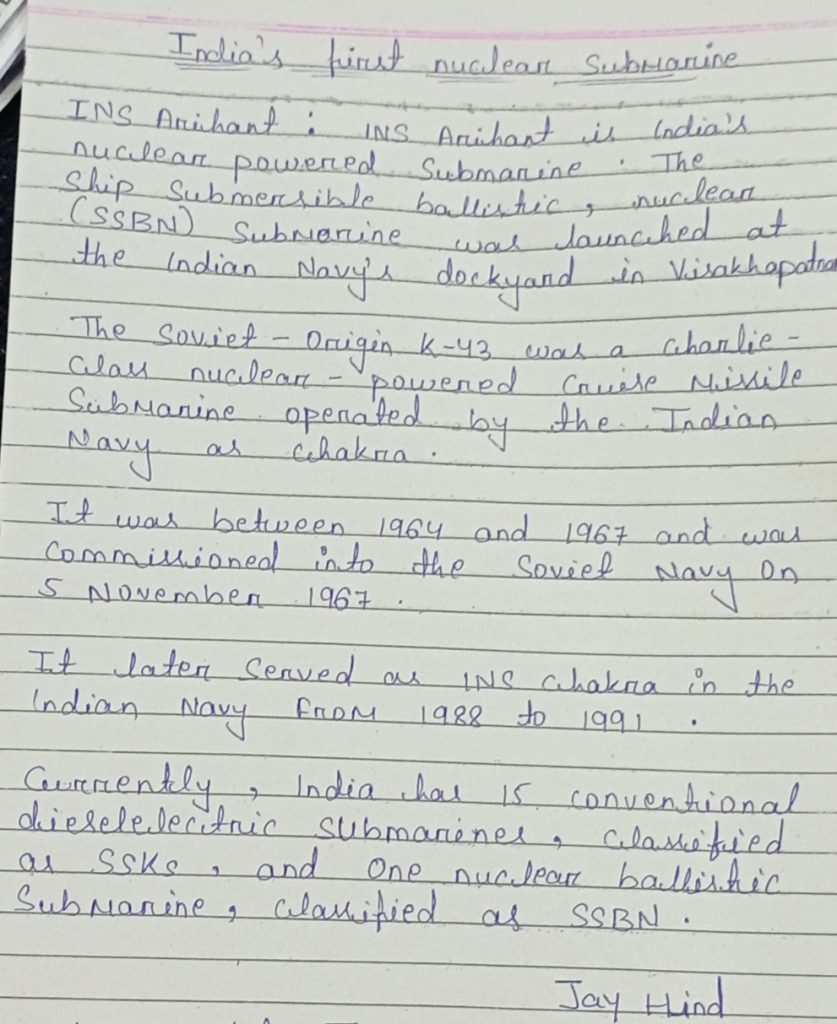 India's first nuclear Submarine
INS Arihant : INS Arihant is India's
nuclear powered Submarine. The
Ship Submersible ballistic, nuclear
(SSBN) Submarine was launched at
the Indian Navy's dockyard in Visakhapatna
The Soviet - Origin K-43 was a Charlie -
class nuclear - powered Cruise Missile
Submarine operated by the Indian
Navy as Chakra.
It was between 1964 and 1967 and was
Commissioned into the Soviet Navy On
5 November 1967.
It later Served as INS Chakra in the
Indian Navy From 1988 to 1991.
Currently, India has 15 conventional
dieselelectric submarines, classified
as SSKs, and One nuclear ballistic
Submarine, classified as SSBN.
Jay Hind